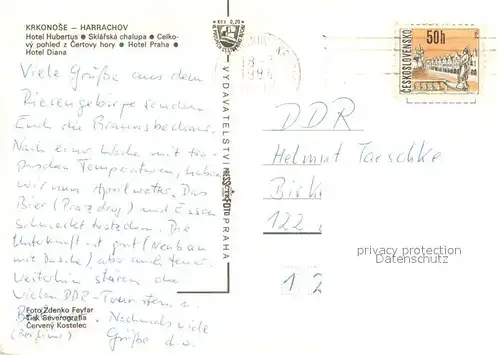 KRKONOŠE – HARRACHOV
Hotel Hubertus ● Sklářská chalupa ● Celko-
vý pohled z Čertovy hory ● Hotel Praha ●
Hotel Diana
Viele Grüße aus dem
Riesengebirge senden
Euch die
Nach einer Woche mit tro-
pischen Temperaturen, haben
wir nun Aprilwetter. Das
Bier (Prazdroj) und Essen
schmeckt trotzdem. Die
Unterkunft ist gut (Neubau
mit Dusche), aber auch teuer.
Weiterhin stören die
vielen DDR-Touristen u.
Nochmals viele
Grüße d. o.
Foto Zdenko Feyfar
Tisk Severografia
Červený Kostelec
VYDAVATELSTVÍ PRESSFOTO PRAHA
50h
ČESKOSLOVENSKO
DDR
Helmut Taeschke
Birk
122
privacy protection
12